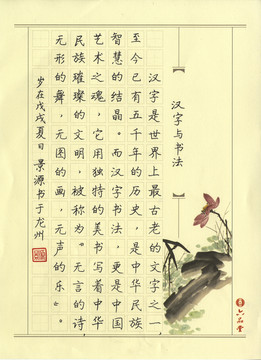 汉字与书法
汉字是世界上最古老的文字之一,
至今已有五千年的历史,是中华民族
智慧的结晶。而汉字书法,更是中国
艺术之魂,它用独特的美书写着中华
民族璀璨的文明,被称为“无言的诗
无形的舞,无图的画,无声的乐”。
岁在戊戌夏日 景源书于龙州
六品堂